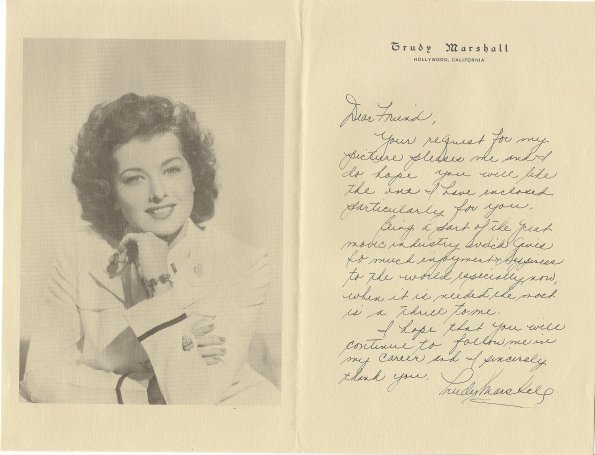 Trudy Marshall
HOLLYWOOD, CALIFORNIA
Dear Friend,
Your request for my
picture pleases me and I
do hope you will like
the one I have enclosed
particularly for you.
Being a part of the great
movie industry which gives
so much enjoyment & happiness
to the world especially now,
when it is needed the most
is a thrill to me.
I hope that you will
continue to follow me in
my career and I sincerely
thank you.
Trudy Marshall